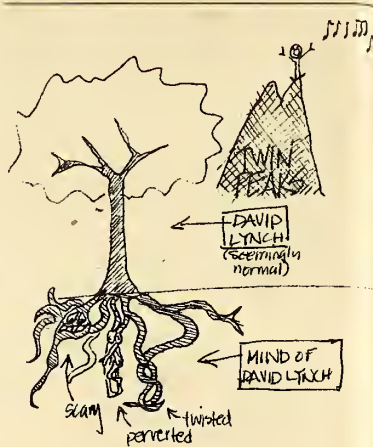 TWIN
PEAKS
DAVID
LYNCH
(seemingly
normal)
MIND OF
DAVID LYNCH
scary
perverted
twisted